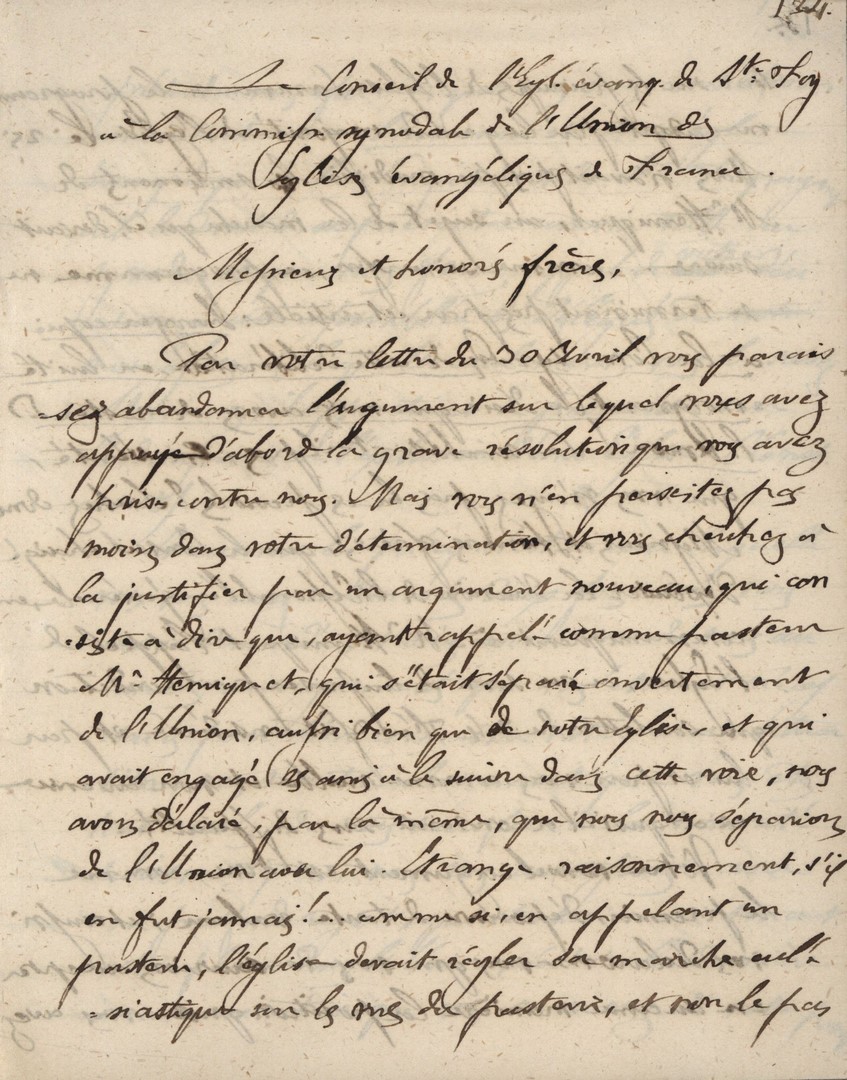 124.
Le Conseil de l'Egl. évang. de Ste. Foy
à la Commissn synodale de l'Union des
Eglises évangéliques de France.
Messieurs et honorés frères,
Par votre lettre du 30 Avril vous parais
-sez abandonner l'argument sur lequel vous avez
appuyé d'abord la grave résolution que vous avez
prise contre nous. Mais vous n'en persistez pas
moins dans votre détermination, et vous cherchez à
la justifier par un argument nouveau, qui con
-siste à dire que, ayant rappelé comme pasteur
Mr. Hemiquet, qui s'était séparé ouvertement
de l'Union, aussi bien que de notre Eglise, et qui
avait engagé ses amis à le suivre dans cette voie, nous
avons déclaré, par là même, que nous nous séparions
de l'Union avec lui. Etrange raisonnement, s'il
en fut jamais!.. comme si, en appelant un
pasteur, l'église devait régler sa marche ecclé
-siastique sur les vues du pasteur, et non le pas